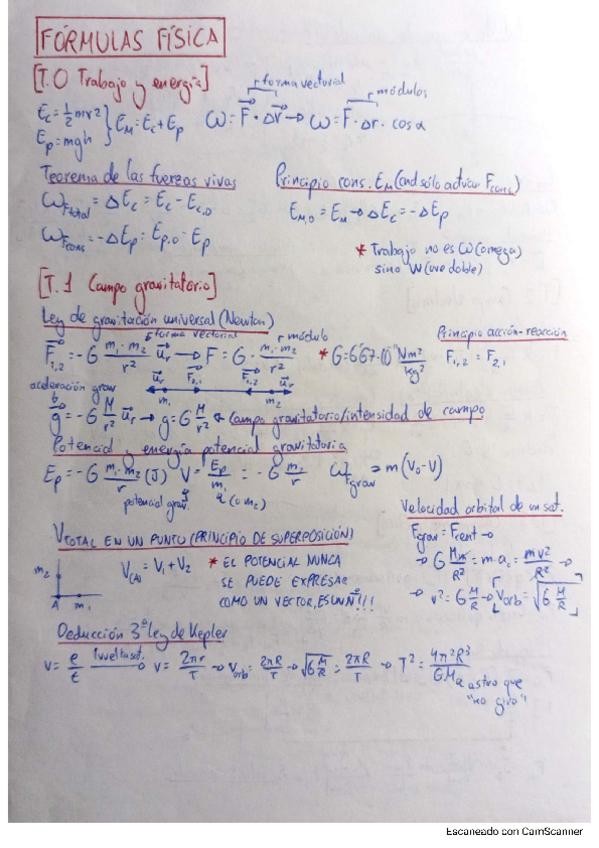 FÓRMULAS FÍSICA
[T.0 Trabajo y energía]
forma vectorial
módulos
Ec = 1/2 mv²
Ep = mgh
} EM = Ec + Ep
ω = F⃗ · Δr⃗ → ω = F · Δr · cos α
Teorema de las fuerzas vivas
ωFtotal = ΔEc = Ec - Ec,0
ωFcons = -ΔEp = Ep,0 - Ep
Principio cons. EM (cnd sólo actúan Fcons)
EM,0 = EM → ΔEc = -ΔEp
* Trabajo no es ω (omega)
sino W (uve doble)
[T.1 Campo gravitatorio]
Ley de gravitación universal (Newton)
forma vectorial
módulo
F⃗1,2 = -G m1·m2/r² u⃗r → F = G · m1·m2/r²
* G = 6'67·10⁻¹¹ Nm²/kg²
Principio acción-reacción
F1,2 = F2,1
u⃗r F⃗2,1 F⃗1,2 u⃗r
m1 m2
aceleración grav
g⃗ = -G M/r² u⃗r → g = G M/r² Campo gravitatorio/intensidad de campo
Potencial y energía potencial gravitatoria
Ep = -G m1·m2/r (J) V = Ep/m = -G m1/r ωFgrav = m(V0-V)
potencial grav.
(o m2)
Velocidad orbital de un sat.
Fgrav = Fcent →
→ G Mm/R² = m·ac = mv²/R →
→ v² = G M/R → vorb = √G M/R
VTOTAL EN UN PUNTO (PRINCIPIO DE SUPERPOSICIÓN)
m2
A m1
V(A) = V1 + V2
* EL POTENCIAL NUNCA
SE PUEDE EXPRESAR
COMO UN VECTOR, ES UN Nº!!!
Deducción 3ª ley de Kepler
v = e/t 1 vuelta sat. v = 2πr/T → vorb = 2πR/T → √G M/R = 2πR/T → T² = 4π²R³/G·M
astro que
"no gira"
Escaneado con CamScanner